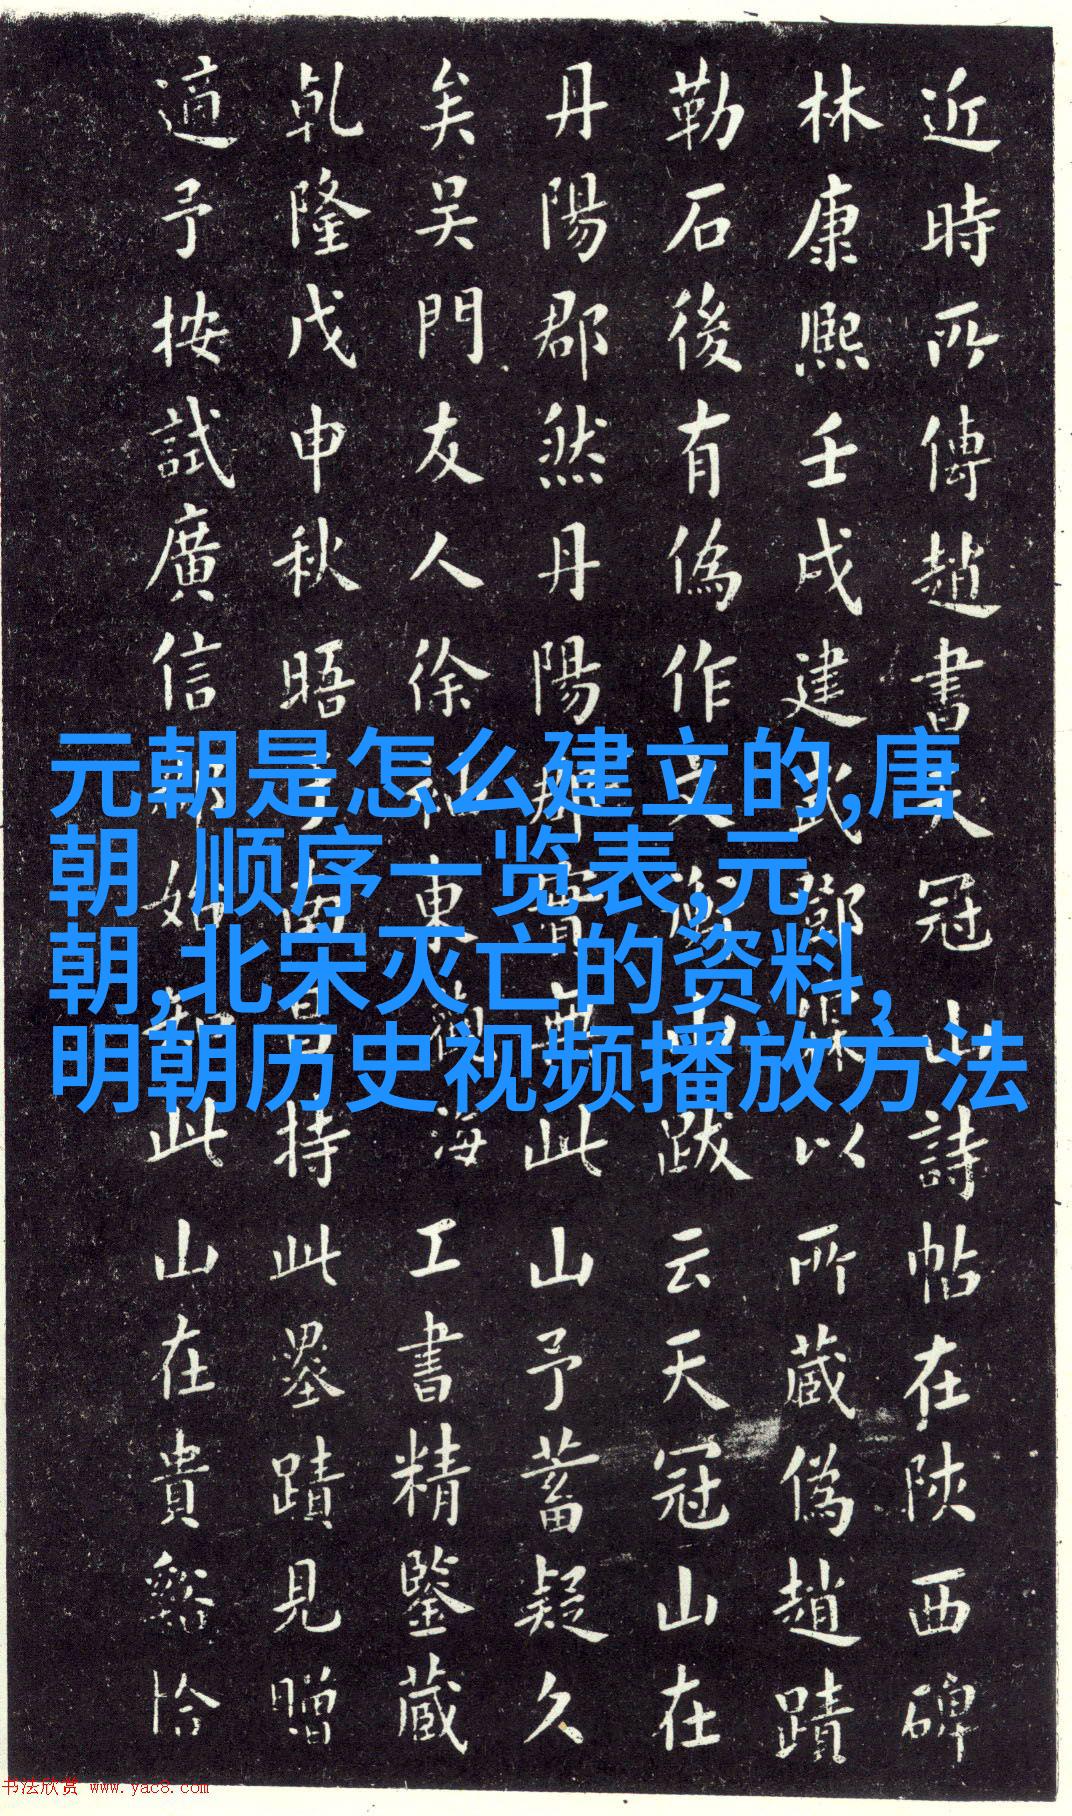 近時所傳趙書天冠山詩帖在陝西碑
林康熙壬戌建武鄧以所藏偽趙蹟
勒石後有偽作文山跋云天冠山在
丹陽郡然丹陽郡實無此山予蓄疑久
矣吳門友人徐東觀海工書精鑒藏
乹隆戊申秋晤于南昌持此墨蹟見贈
適予按試廣信始知此山在貴谿恰
元朝是怎么建立的,唐
朝 顺序一览表,元
朝,北宋灭亡的资料,
明朝历史视频播放方法
书法欣赏 www.yac8.com